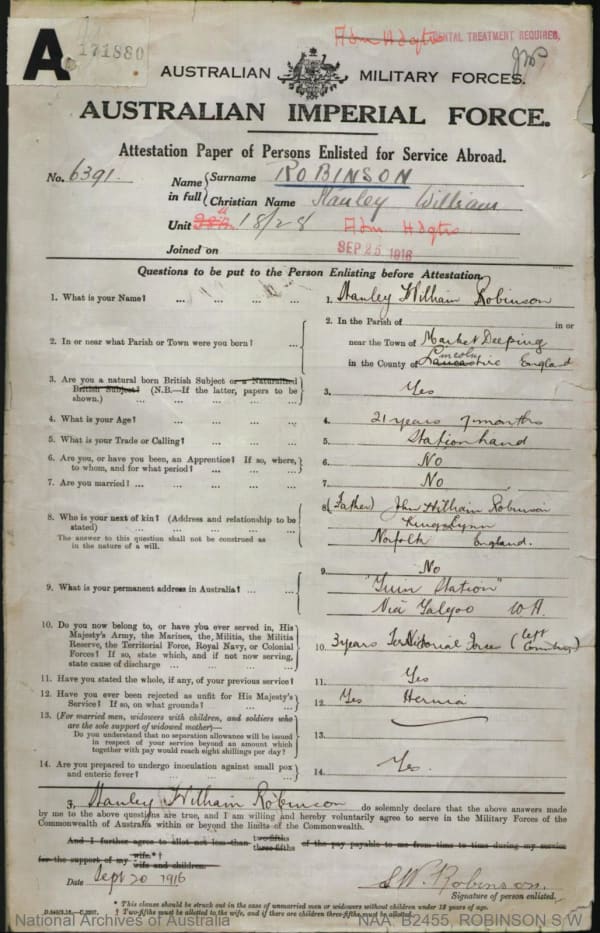 A.
171880
Adm Hdqtrs DENTAL TREATMENT REQUIRED.
AUSTRALIAN MILITARY FORCES.
AUSTRALIAN IMPERIAL FORCE.
Attestation Paper of Persons Enlisted for Service Abroad.
No. 6391. Name in full Surname ROBINSON
Christian Name Stanley William
Unit 18/28 Adm Hdqtrs
Joined on SEP 25 1916
Questions to be put to the Person Enlisting before Attestation.
1. What is your Name? ... ... ... ... 1. Stanley William Robinson
2. In or near what Parish or Town were you born? ... 2. In the Parish of in or
near the Town of Market Deeping
in the County of Lincoln Lancashire England
3. Are you a natural born British Subject or a Naturalized
British Subject? (N.B.—If the latter, papers to be
shown.) ... ... ... ... ... 3. Yes
4. What is your Age? ... ... ... ... 4. 21 years 7 months
5. What is your Trade or Calling? ... ... ... 5. Station hand
6. Are you, or have you been, an Apprentice? If so, where,
to whom, and for what period? ... ... ... 6. No
7. Are you married? ... ... ... ... ... 7. No
8. Who is your next of kin? (Address and relationship to be
stated) ... ... ... ... ...
The answer to this question shall not be construed as
in the nature of a will.
8. (Father) John William Robinson
Kings Lynn
Norfolk England.
9. What is your permanent address in Australia? ... ... 9. No
"Yuin Station"
Via Yalgoo WA
10. Do you now belong to, or have you ever served in, His
Majesty's Army, the Marines, the Militia, the Militia
Reserve, the Territorial Force, Royal Navy, or Colonial
Forces? If so, state which, and if not now serving,
state cause of discharge ... ... ... ...
10. 3 years Territorial Force (left Country)
11. Have you stated the whole, if any, of your previous service? 11. Yes
12. Have you ever been rejected as unfit for His Majesty's
Service? If so, on what grounds? ... ... 12. Yes Hernia
13. (For married men, widowers with children, and soldiers who
are the sole support of widowed mother)—
Do you understand that no separation allowance will be issued
in respect of your service beyond an amount which
together with pay would reach eight shillings per day?
13.
14. Are you prepared to undergo inoculation against small pox
and enteric fever? ... ... ... ... 14. Yes.
I, Stanley William Robinson do solemnly declare that the above answers made
by me to the above questions are true, and I am willing and hereby voluntarily agree to serve in the Military Forces of the
Commonwealth of Australia within or beyond the limits of the Commonwealth.
And I further agree to allot not less than two-fifths three-fifths of the pay payable to me from time to time during my service
for the support of my wife.*† wife and children.
Date Sept 20 1916
S W. Robinson.
Signature of person enlisted.
* This clause should be struck out in the case of unmarried men or widowers without children under 18 years of age.
† Two-fifths must be allotted to the wife, and if there are children three-fifths must be allotted.
National Archives of Australia NAA: B2455, ROBINSON S W